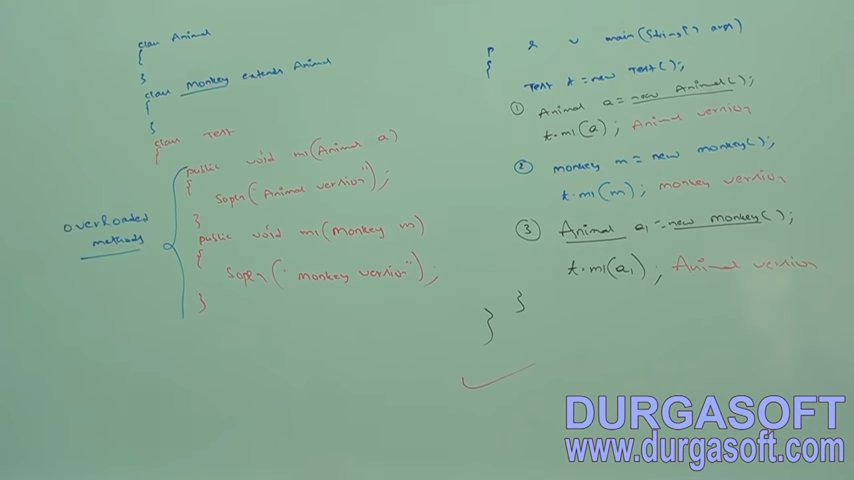 class Animal
{
}
class Monkey extends Animal
{
}
class Test
{
public void m1(Animal a)
{
Sopln("Animal version");
}
public void m1(Monkey m)
{
Sopln("monkey version");
}
overloaded
methods
p s v main(String[] args)
{
Test t = new Test();
① Animal a = new Animal();
t.m1(a); Animal version
② monkey m = new monkey();
t.m1(m); monkey version
③ Animal a1 = new monkey();
t.m1(a1); Animal version
}
}
DURGASOFT
www.durgasoft.com